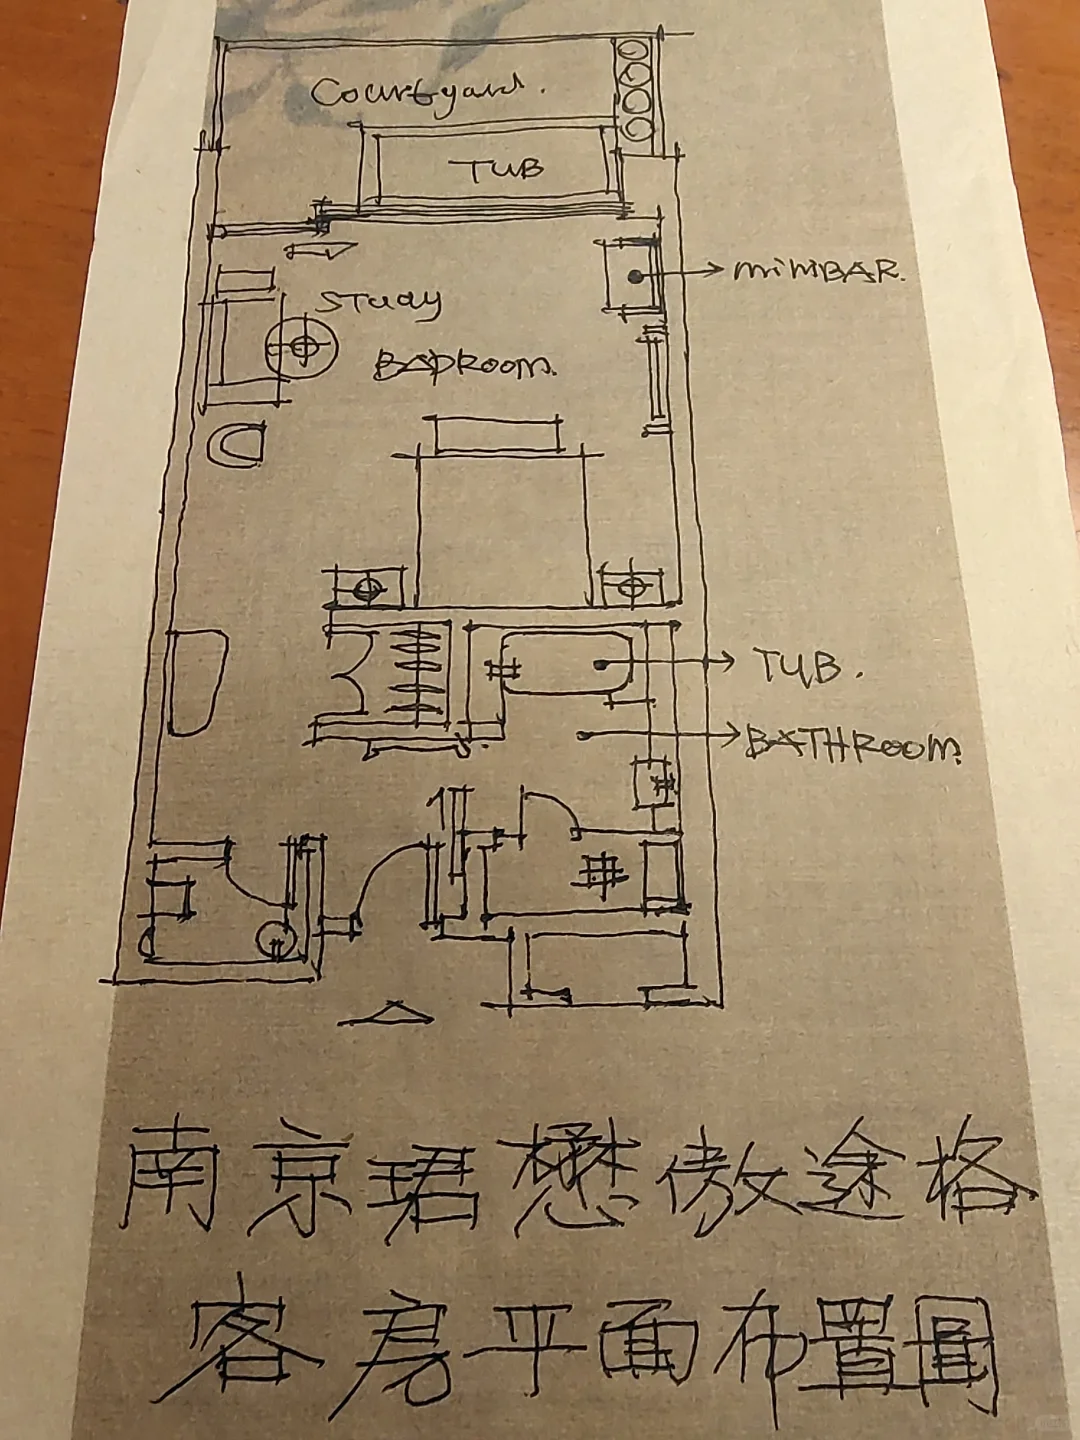 Courtyard.
TUB
miniBAR.
STudy
BADRoom.
TUB.
BATHRoom.
南京珺懋傲途格
客房平面布置圖